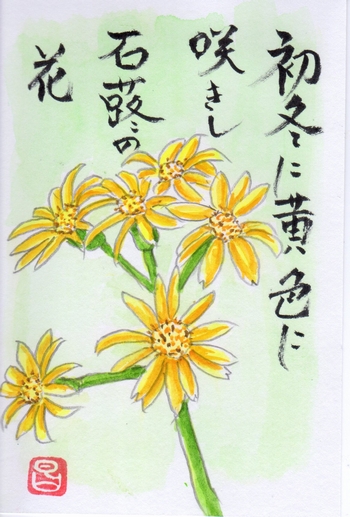 初冬に黄色に
咲きし
石蕗の
花